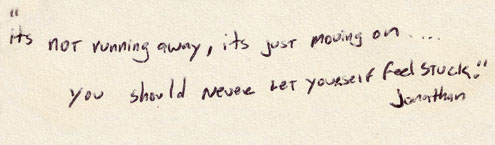 "its not running away, its just moving on ....
you should never let yourself feel stuck."
Jonathan